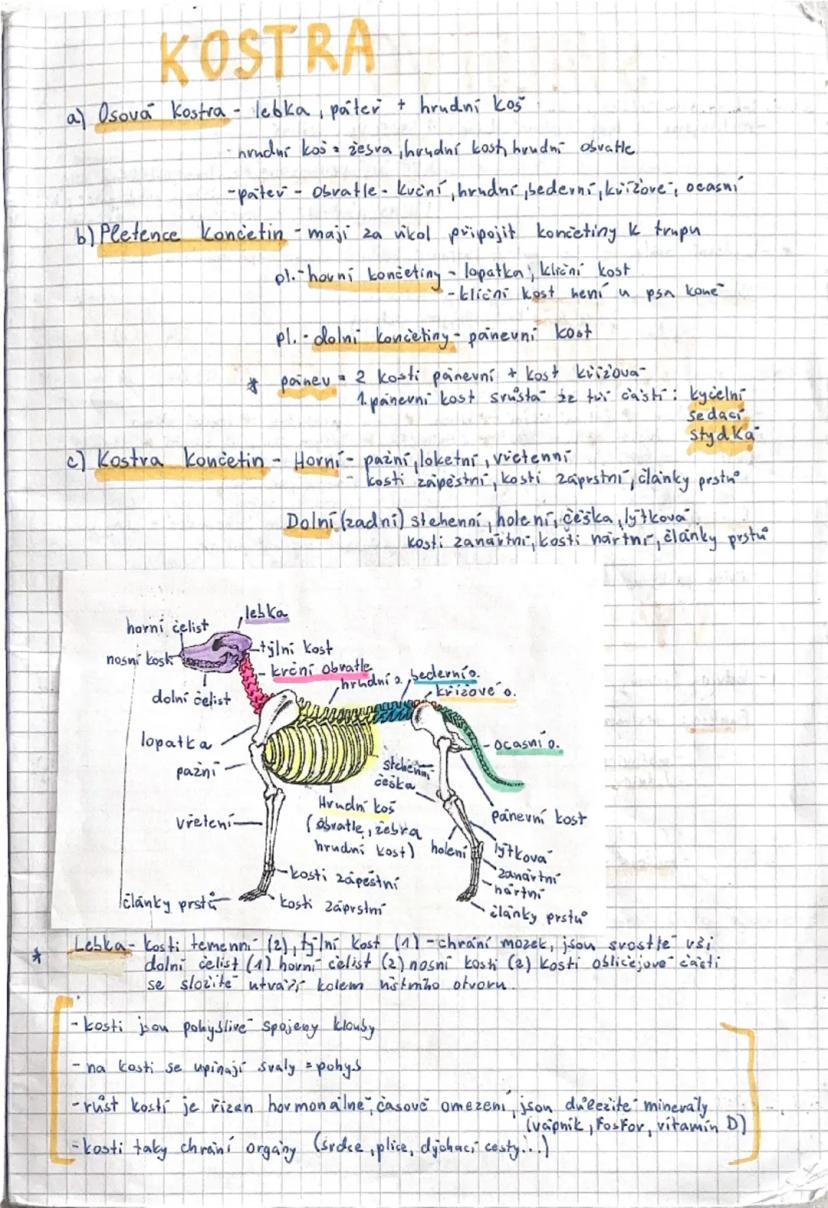 KOSTRA
a) Osová kostra - lebka, páteř + hrudní koš
- hrudní koš = žebra, hrudní kost, hrudní obratle
- páteř - obratle - krční, hrudní, bederní, křížové, ocasní
b) Pletence končetin - mají za úkol připojit končetiny k trupu
pl. - horní končetiny - lopatka, klíční kost
- klíční kost není u psa koně
pl. - dolní končetiny - pánevní kost
* pánev = 2 kosti pánevní + kost křížová
1. pánevní kost srůstá ze tří částí: kyčelní
sedací
stydká
c) Kostra končetin - Horní - pažní, loketní, vřetenní
- kosti zápěstní, kosti záprstní, články prstů
Dolní (zadní) stehenní, holení, češka, lýtková
kosti zanártní, kosti nártní, články prstů
lebka
horní čelist
týlní kost
nosní kost
krční obratle
hrudní o.
bederní o.
křížové o.
dolní čelist
lopatka
ocasní o.
pažní
stehenní
češka
Hrudní koš
(obratle, žebra
hrudní kost)
pánevní kost
vřetení
holení
lýtková
zanártní
nártní
kosti zápěstní
články prstů
kosti záprstní
články prstů
* Lebka - kosti temenní (2), týlní kost (1) - chrání mozek, jsou svostlé vší
dolní čelist (1) horní čelist (2) nosní kosti (2) kosti obličejové části
se složitě utváří kolem ústního otvoru.
- kosti jsou pohyblivě spojeny klouby
- na kosti se upínají svaly = pohyb
- růst kostí je řízen hormonálně, časově omezení, jsou důležité minerály
(vápník, fosfor, vitamín D)
- kosti taky chrání orgány (srdce, plíce, dýchací cesty...)